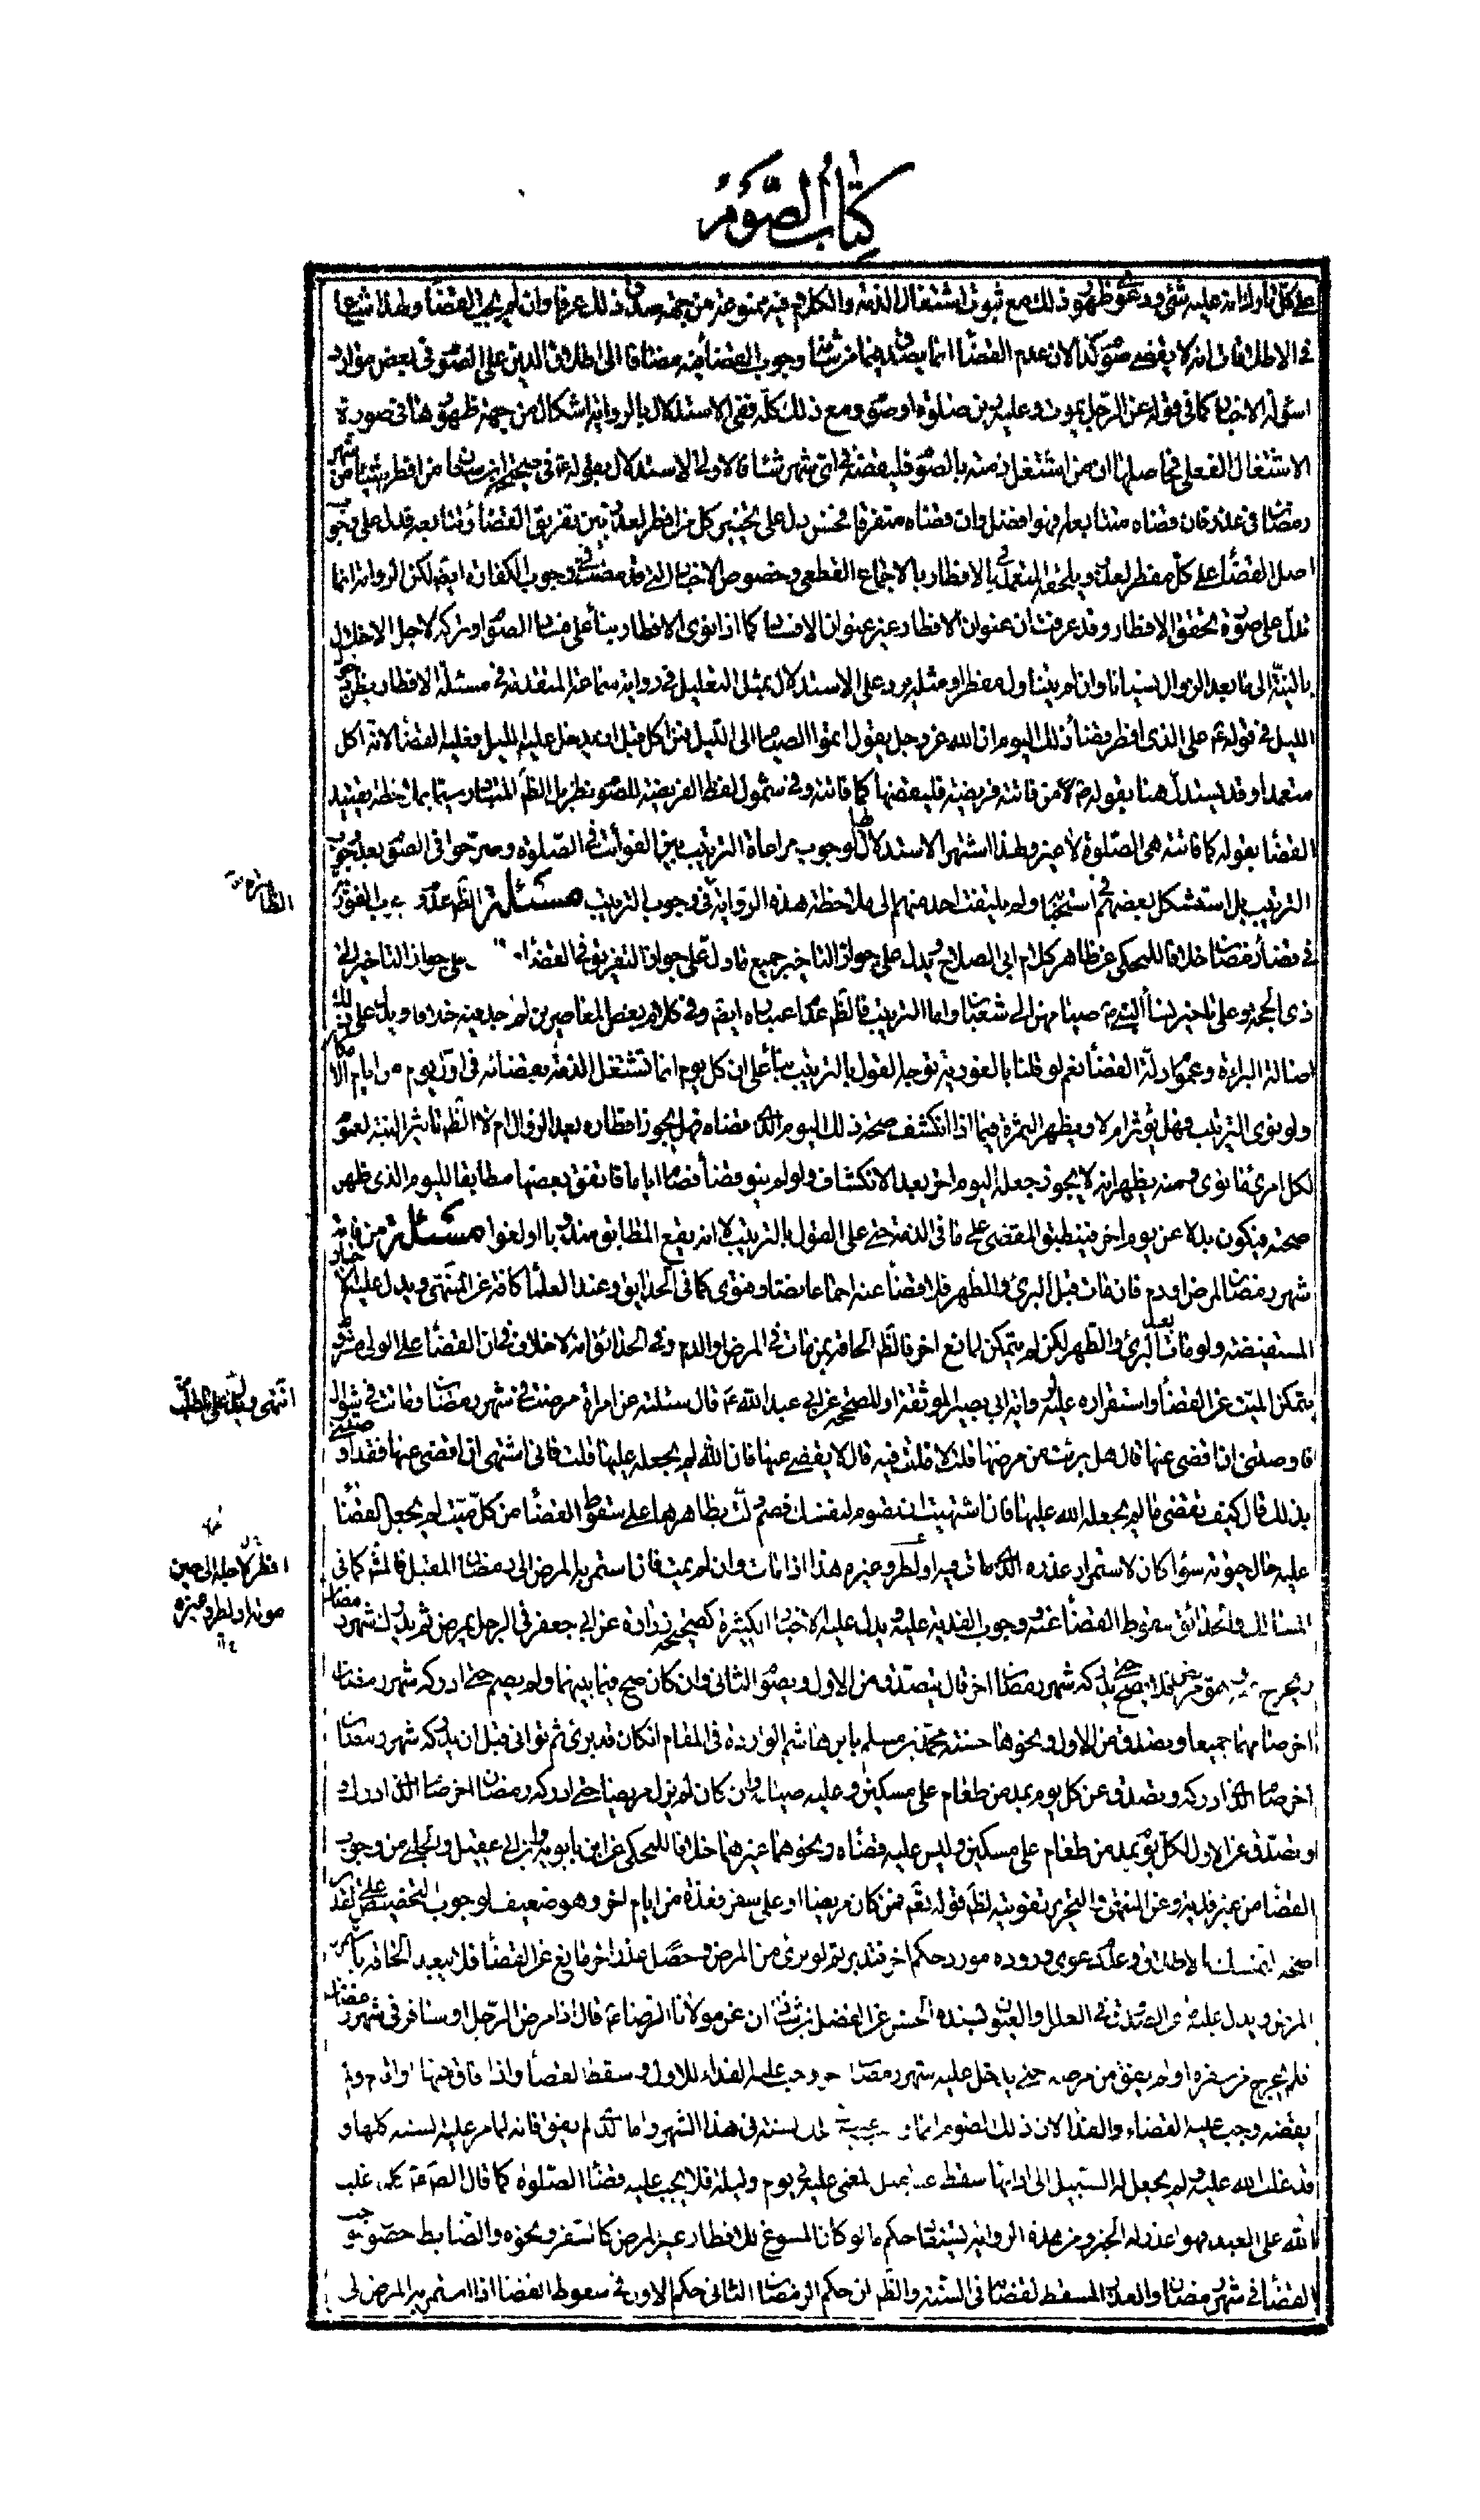 كتاب الصوم
على كل ما وك انه عليه شئ ودعوى ظهور ذلك مع ثبوت اشتغال الذمة والكلام فيه ممنوعة من جهة صدق ذلك عرفا وان لم يجب القضاء ولهذا شاع
في الاطلاق ان لا يقضيه لان عدم القضاء انما يصدق فيما من شأنه وجوب القضاء فيه مضافا الى اطلاق الدين على الصوم في بعض موارد
اسئولة الاخبار كما في قوله عن الرجل يموت وعليه دين صلوة او صوم ومع ذلك كله ففي الاستدلال بالرواية اشكال من جهة ظهورها في صورة
الاشتغال الفعلي فحاصلها ان من اشتغل ذمته بالصوم فليقضه في اي شهر شاء فالاولى الاستدلال بقوله ع في صحيحة ابن سنان من افطر شيئا من شهر
رمضان في عذر فان قضاه متتابعا فهو افضل وان قضاه متفرقا فحسن يدل على تخيير كل من افطر لعذر بين تفريق القضاء وتتابعه فيدل على وجوب
اصل القضاء على كل مفطر لعذر ويلحق به المتعمد في الافطار بالاجماع القطعي وخصوص الاخبار التي قد مضت في وجوب الكفارة ايضا لكن الرواية انما
تدل على صورة تحقق الافطار وقد عرفت ان عنوان الافطار غير عنوان الافساد كما اذا نوى الافطار بناء على فساد الصوم او تركه لاجل الاخلال
بالنية الى ما بعد الزوال نسيانا وان لم يتناول مفطرا ومثله يرد على الاستدلال بمثل التعليل في رواية سماعة المتقدمة في مسئلة الافطار بظن دخول
الليل في قوله ع على الذي افطر قضاء ذلك اليوم ان الله عز وجل يقول اتموا الصيام الى الليل فمن اكل قبل ان يدخل عليه الليل فعليه القضاء لانه اكل
متعمدا وقد يستدل هنا بقوله ع من فاتته فريضة فليقضها كما فاتته وفي شمول لفظ الفريضة للصوم نظر بل الظاهر المتبادر سيما بملاحظة تقييد
القضاء بقوله كما فاتته هي الصلوة لا غير ولهذا اشتهر الاستدلال بها لوجوب مراعاة الترتيب بين الفوائت في الصلوة وصرحوا في الصوم بعدم وجوب
الترتيب بل استشكل بعضهم في استحبابه ولم يلتفت احد منهم الى ملاحظة هذه الرواية في وجوب الترتيب مسئلة الظ عدم وجوب الفور
في قضاء رمضان خلافا للمحكي عن ظاهر كلام ابي الصلاح ويدل على جواز التاخير جميع ما دل على جواز التفريق في القضاء على جواز التاخير الى
ذي الحجة وعلى تاخير نساء النبي ص صيامهن الى شعبان واما الترتيب فالظ عدم اعتباره ايضا وفي كلام بعض المعاصرين
اصالة البراءة وعموم ادلة القضاء نعم لو قلنا بالفورية توجه القول بالترتيب بناء على ان كل يوم انما تشتغل الذمة بقضائه في اول يوم من ايام
ولو نوى الترتيب فهل يؤثر ام لا ويظهر الثمرة فيما اذا انكشف صحة ذلك اليوم الذي قضاه فهل يجوز افطاره بعد الزوال ام لا الظ تاثير النية لعموم
لكل امرئ ما نوى ومنه يظهر انه لا يجوز جعله ليوم اخر بعد الانكشاف ولو لم ينو قضاء فصام اياما فاتفق بعضها مطابقا لليوم الذي ظهر
صحته فيكون بدلا عن يوم اخر فينطبق المقضي على ما في الذمة حتى على القول بالترتيب لا انه يقع المطابق مندوبا او لغوا مسئلة من فاته
شهر رمضان لمرض او دم فان مات قبل البرء والطهر فلا قضاء عنه اجماعا نصا وفتوى كما في الحدائق وعند العلماء كافة عن المنتهى ويدل عليه الاخبار
المستفيضة ولو مات بعد البرء والطهر لكن لم يتمكن لمانع اخر فالظ الحاقه بمن مات في المرض والدم وفي الحدائق انه لا خلاف في ان القضاء على الولي مشروط
بتمكن الميت عن القضاء واستقراره عليه رواية ابي بصير الموثقة او الصحيحة عن ابي عبد الله ع قال سئلته عن امراة مرضت في شهر رمضان وماتت في شوال
فاوصتني ان اقضي عنها قال هل برئت من مرضها قلت لا ماتت فيه قال لا يقضي عنها فان الله لم يجعله عليها قلت فاني اشتهي ان اقضي عنها وقد اوصتني
بذلك قال كيف تقضي ما لم يجعله الله عليها فان اشتهيت ان تصوم لنفسك فصم دلت بظاهرها على سقوط القضاء من كل ميت لم يجعل القضاء
عليه حال حيوته سواء كان لاستمرار عذره الذي مات فيه او لطرو غيره هذا اذا مات وان لم يمت فان استمر به المرض الى رمضان المقبل فالمش كما في
المسالك والحدائق سقوط القضاء عنه ووجوب الفدية عليه ويدل عليه الاخبار الكثيرة كصحيحة زرارة عن ابي جعفر في الرجل يمرض ثم يدرك شهر رمضان
ويخرج عنه وهو مريض فلا يصح حتى يدركه شهر رمضان اخر قال يتصدق من الاول ويصوم الثاني وان كان صح فيما بينهما ولم يصم حتى ادركه شهر رمضان
اخر صامهما جميعا ويتصدق من الاول ونحوها حسنة محمد بن مسلم بابن هاشم الواردة في المقام ان كان قد برئ ثم توانى قبل ان يدركه شهر رمضان
اخر صام الذي ادركه وتصدق عن كل يوم بمد من طعام على مسكين وعليه صيامه وان كان لم يزل مريضا حتى ادركه رمضان اخر صام الذي ادركه
وتصدق عن الاول لكل يوم بمد من طعام على مسكين وليس عليه قضاه ونحوهما غيرهما خلافا للمحكي عن ابن بابويه وابن ابي عقيل والحلي من وجوب
القضاء من غير فدية وعن المنتهى والتحرير تقويته لظ قوله تع فمن كان مريضا او على سفر فعدة من ايام اخر وهو ضعيف لوجوب التخصيص على تقدير
صحة التمسك بالاطلاق وعدم دعوى وروده مورد حكم اخر فتدبر ثم لو برئ من المرض وحصل عذر اخر مانع عن القضاء فلا يبعد الحاقه
المرض ويدل عليه في العلل والعيون بسنده الحسن عن الفضل بن شاذان عن مولانا الرضا ع قال اذا مرض الرجل او سافر في شهر رمضان
فلم يخرج من سفره او لم يفق من مرضه حتى يدخل عليه شهر رمضان اخر وجب عليه الفداء للاول وسقط القضاء واذا افاق بينهما او اقام ولم
يقضه وجب عليه القضاء والفداء لان ذلك الصوم انما وجب عليه في تلك السنة في هذا الشهر واما الذي لم يفق فانه لما مر عليه السنة كلها و
قد غلب الله عليه ولم يجعل له السبيل الى ادائها سقط عنه المغمى عليه في يوم وليلة فلا يجب عليه قضاء الصلوة كما قال الصادق ع كلما غلب
الله على العبد فهو اعذر له الخبر ومن هذه الرواية يستفاد حكم ما لو كان المسوغ للافطار غير المرض كالسفر ونحوه والضابط حصول وجوب
القضاء في شهر رمضان والعذر المسقط لقضاء في السنة والظ ان حكم الرمضان الثاني حكم الاول في سقوط القضاء اذا استمر به المرض الى
الظاهر
انتهى ويدل على المطلب
افطر لاجله الى حين
موته او لطرو غيره